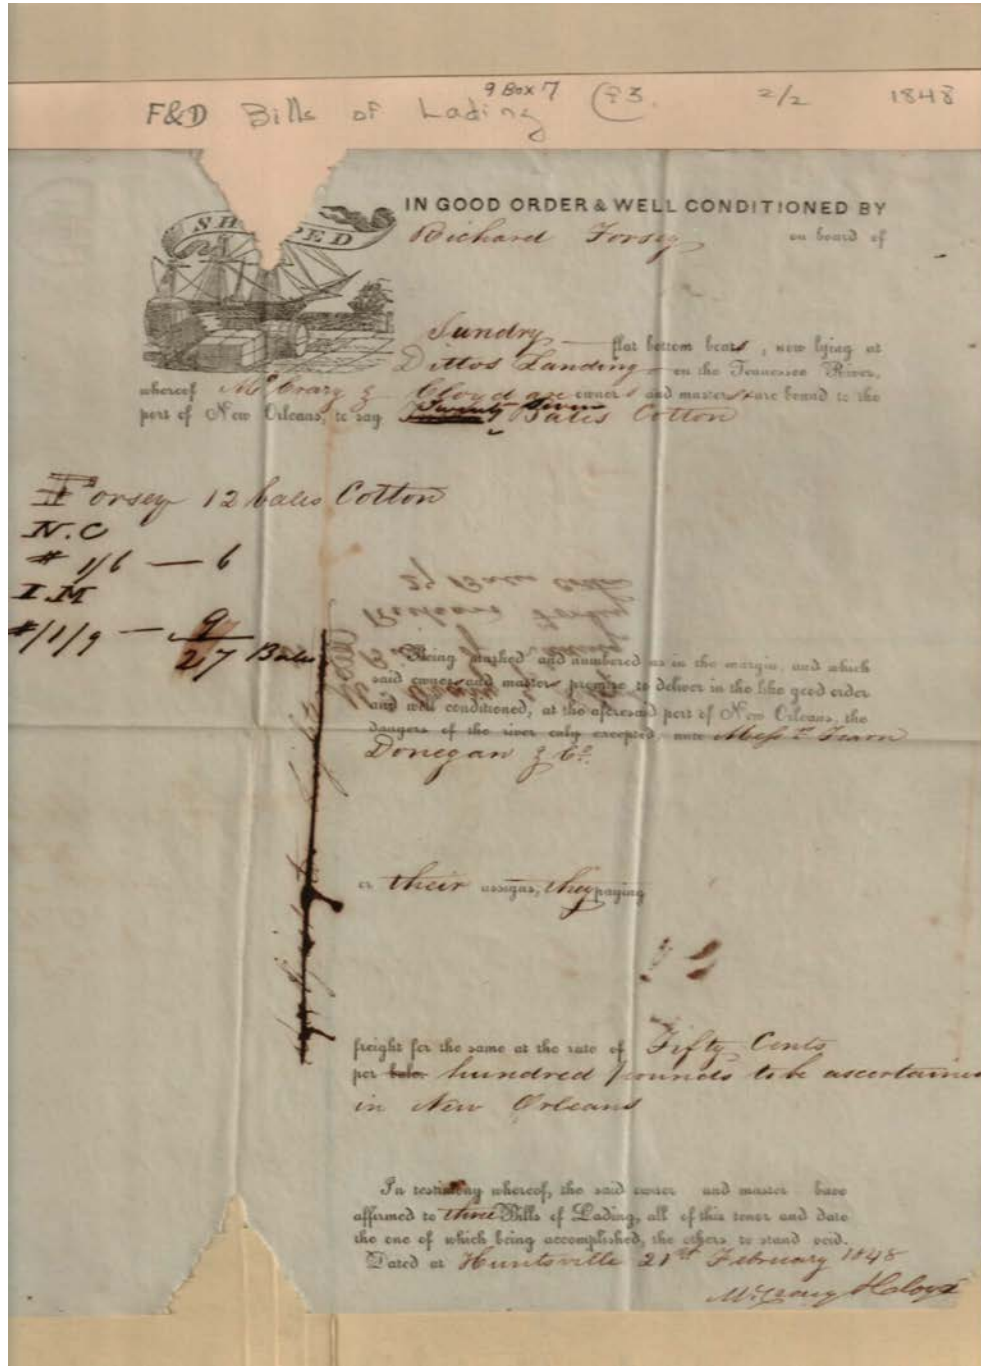 9 Box 7
2/2 1848
F&D Bills of Lading
SHIPPED
IN GOOD ORDER & WELL CONDITIONED BY
Richard Forsey on board of
Sundry flat bottom boats, now lying at
Dittos Landing on the Tennessee River,
whereof McCrary & Cloyd are owners and masters are bound to the
port of New Orleans, to say Twenty Seven Bales Cotton
Forsey 12 bales Cotton
N.C
# 1/6 — 6
I.M
#/1/9 — 9
27 Bales
Being marked and numbered as in the margin, and which
said owners and masters promise to deliver in the like good order
and well conditioned, at the aforesaid port of New Orleans, the
dangers of the river only excepted, unto Messrs Fearn
Donegan & Co.
or their assigns, they paying
freight for the same at the rate of Fifty Cents
per bale. hundred pounds to be ascertained
in New Orleans
In testimony whereof, the said owner and master have
affirmed to three Bills of Lading, all of this tenor and date
the one of which being accomplished, the others to stand void.
Dated at Huntsville 21st February 1848
McCrary & Cloyd